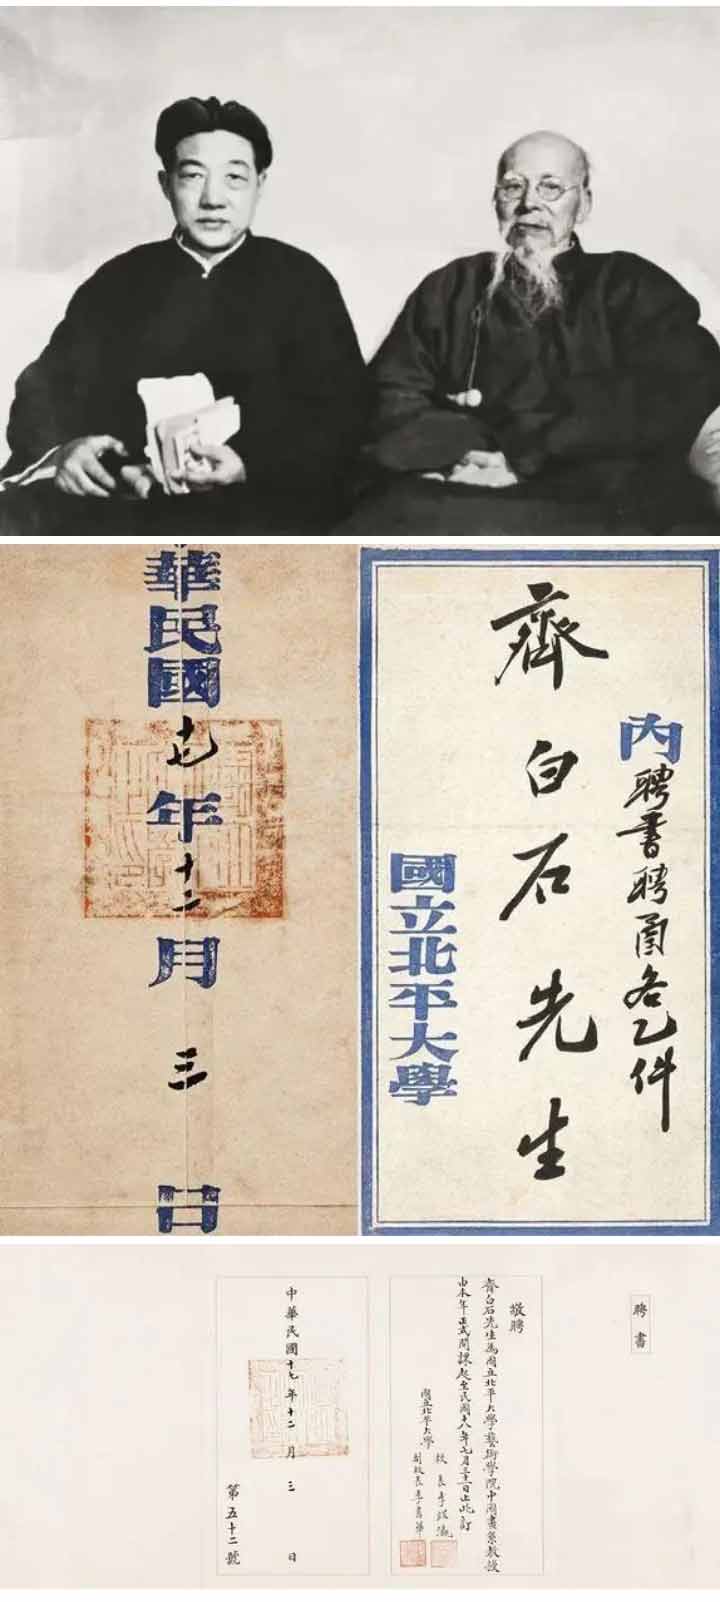 華民國十七年十二月三日
內聘書聘函各乙件
齊白石先生
國立北平大學
聘書
敬聘
齊白石先生為國立北平大學藝術學院中國畫系教授
由本年正式開課起至民國十八年七月三十一日止此訂
國立北平大學
校長李煜瀛
副校長李書華
中華民國十七年十二月三日
第五十二號